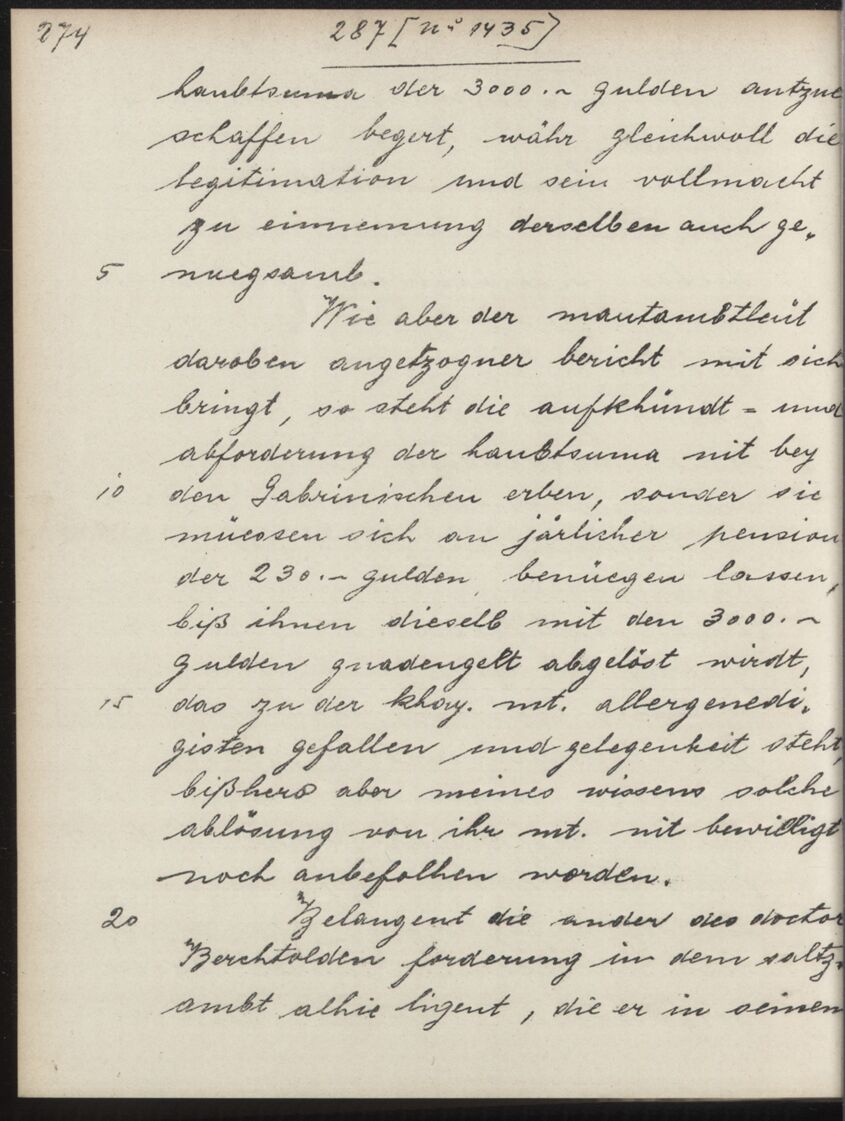 274
287 [n° 1435]
haubtsuma der 3000.~ gulden antzue
schaffen begert, währ gleichwoll die
legitimation und sein vollmacht
zu einnemung derselben auch ge„
5 nuegsamb.
Wie aber der mautambtleüt
daroben angetzogner bericht mit sich
bringt, so steht die aufkhündt = und
abforderung der haubtsuma nit bey
10 den Gabrinischen erben, sonder sie
müessen sich an järlicher pension
der 230.~ gulden benüegen lassen,
biß ihnen dieselb mit den 3000.~
gulden gnadengelt abgelöst wirdt,
15 das zu der khay. mt. allergenedi„
gisten gefallen und gelegenheit steht,
bißhero aber meines wissens solche
ablösung von ihr mt. nit bewilligt
noch anbefolhen worden.
20 Belangent die ander des doctor
Berchtolden forderung in dem saltz„
ambt alhie ligent, die er in seinem